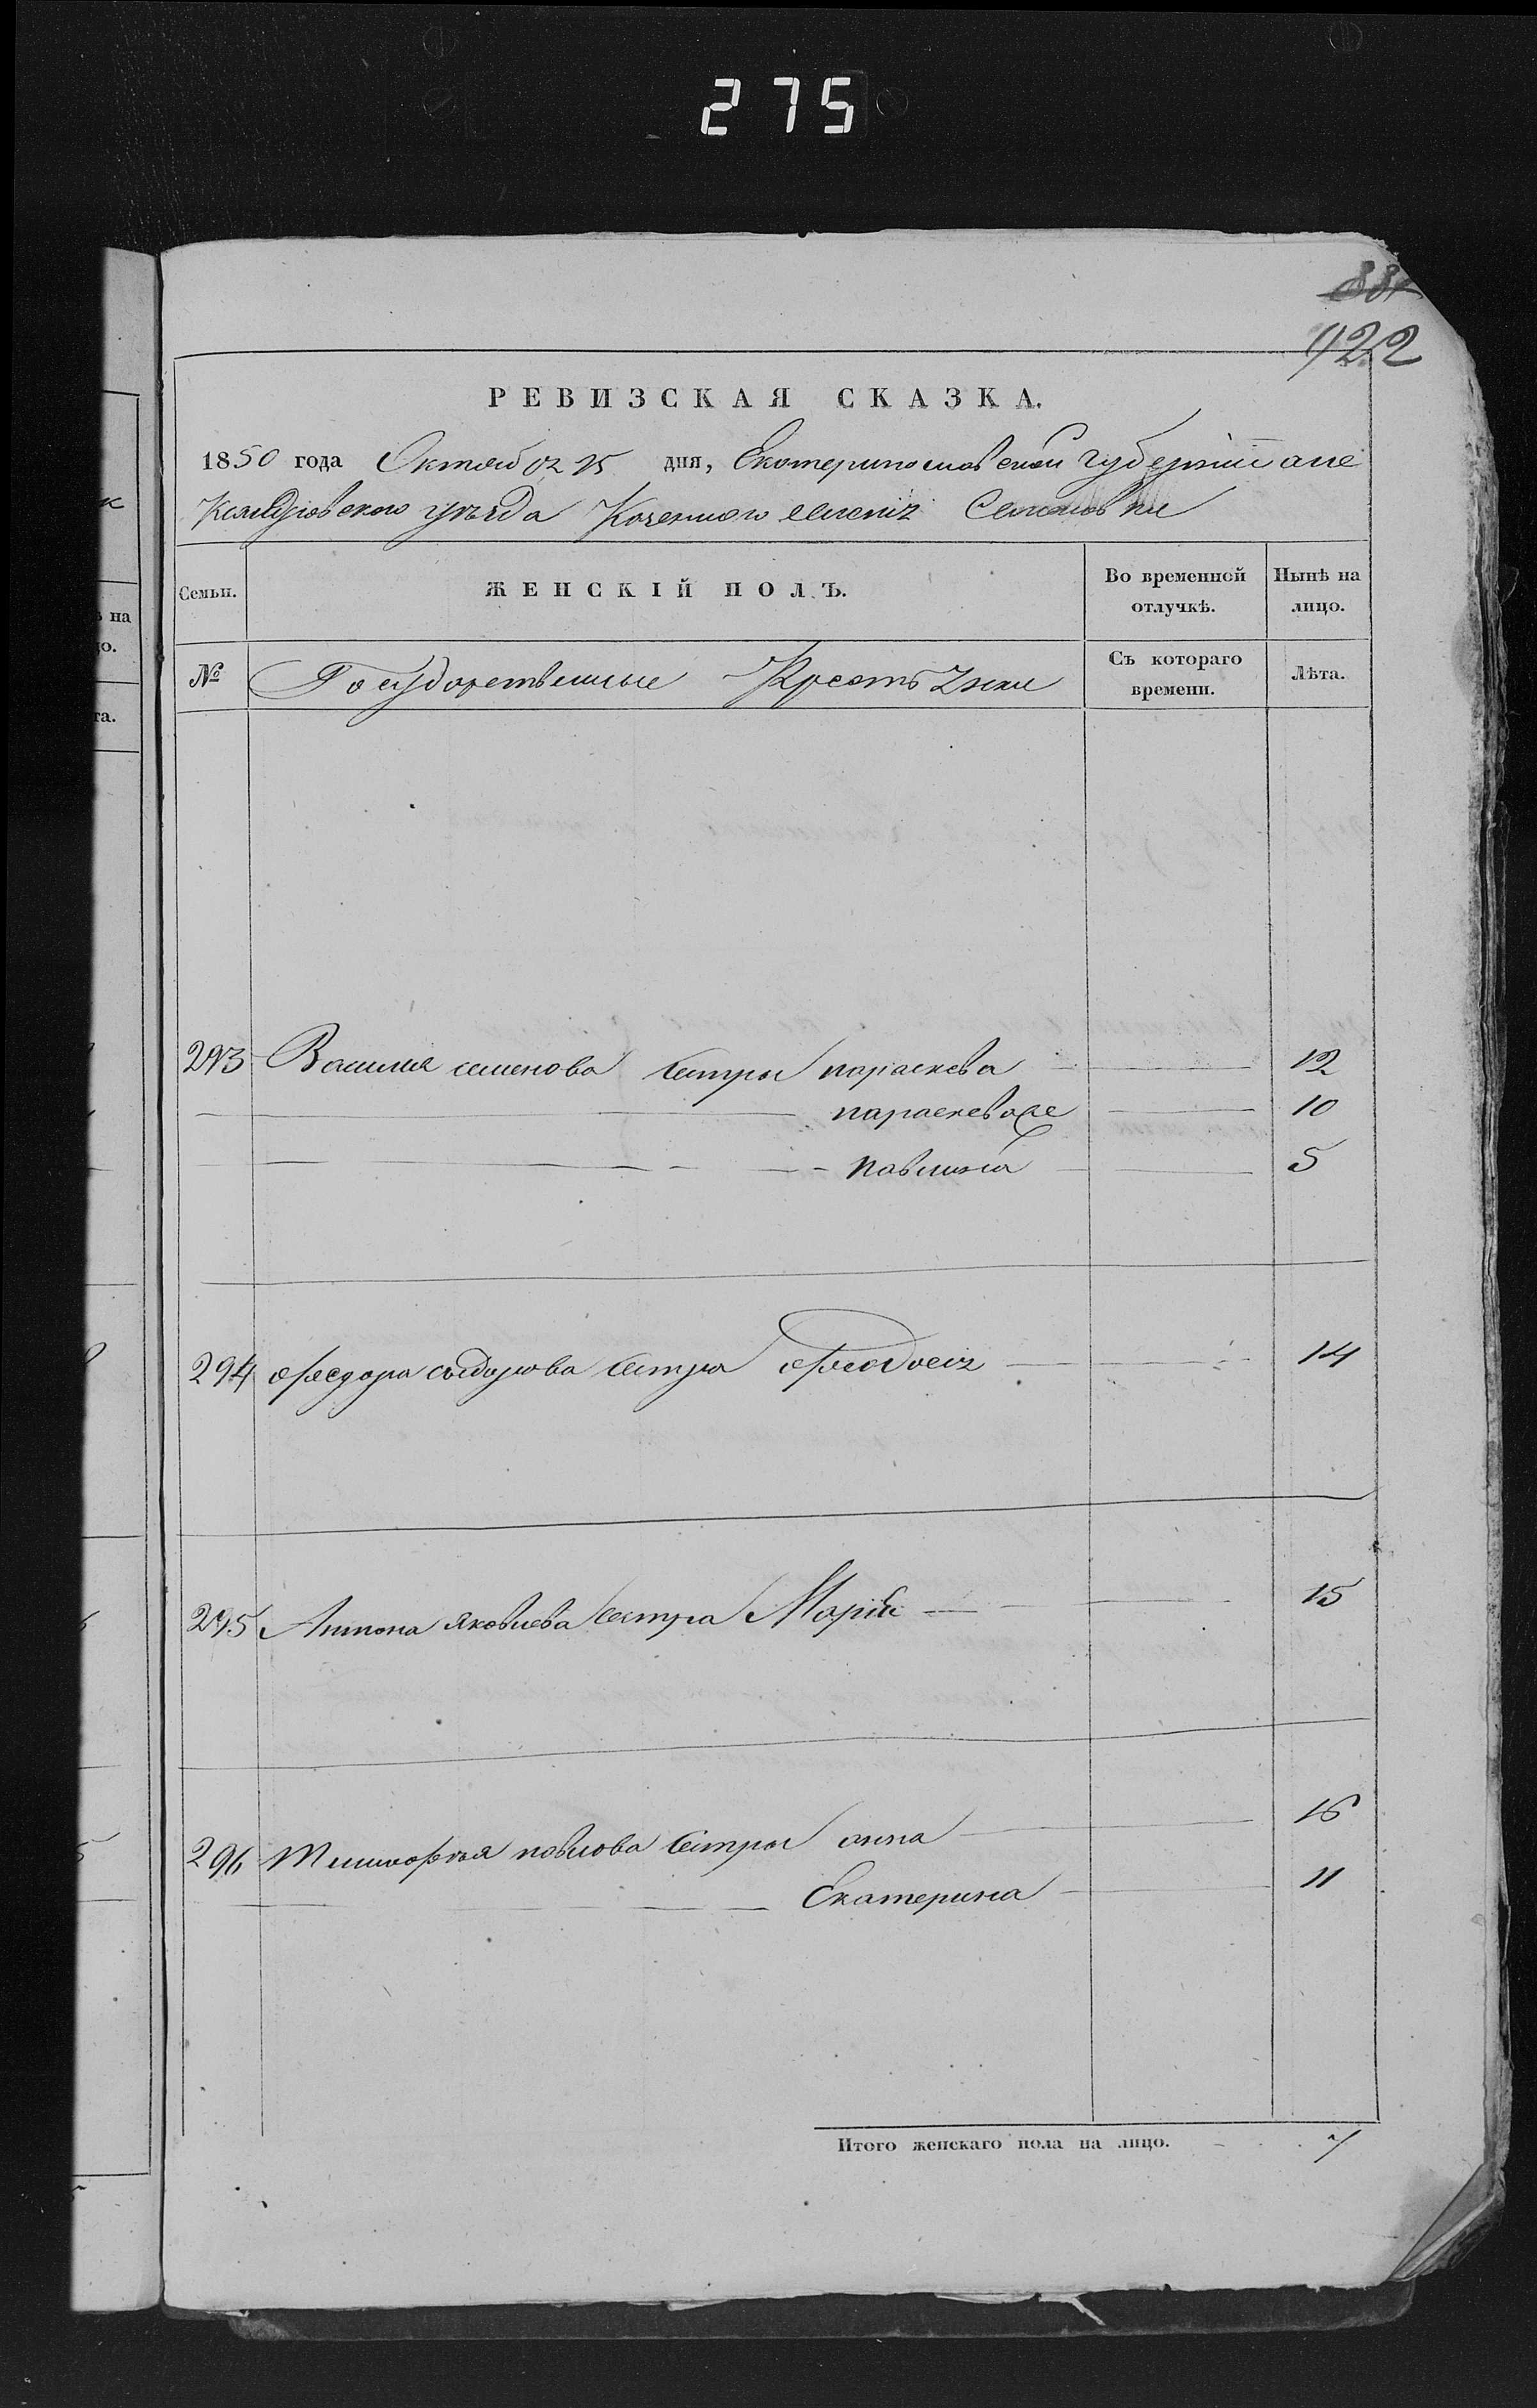 275
881
422
РЕВИЗСКАЯ СКАЗКА.
1850 года Октября 25 дня, Екатеринославской Губерніи Але
ксандровского уезда Казенного селенія Семеновки
Семьи. ЖЕНСКІЙ ПОЛЪ. Во временной отлучкѣ. Нынѣ на лицо.
№ Государственные Крестьянки Съ котораго времени. Лѣта.
293 Василия семенова сестры параскева 12
параскева же 10
павлина 5
294 федора сидорова сестра феодосія 14
295 Антона яковлева сестра Марія 15
296 тимофея павлова сестры анна 16
Екатерина 11
Итого женскаго пола на лицо. 7